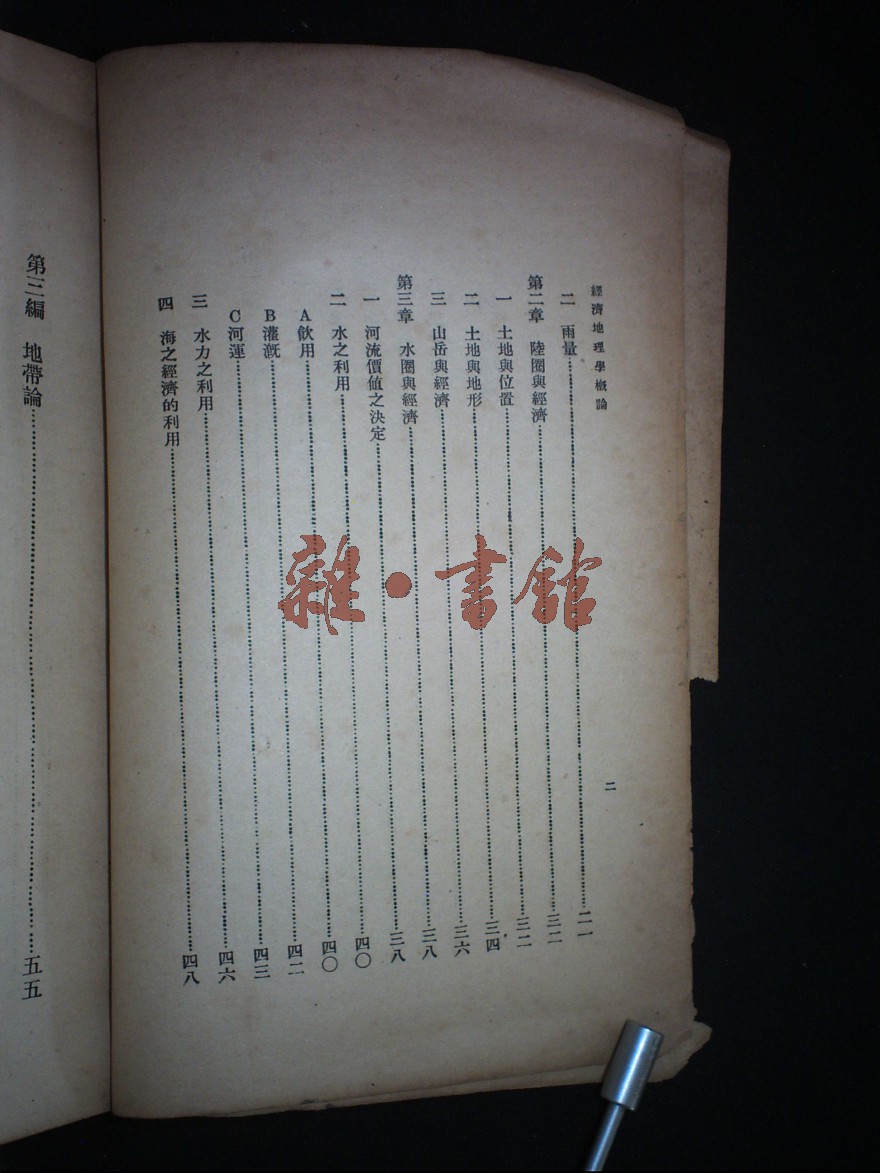 經濟地理學概論 二
二 雨量……二一
第二章 陸圈與經濟……三二
一 土地與位置……三二
二 土地與地形……三四
三 山岳與經濟……三六
第三章 水圈與經濟……三八
一 河流價値之決定……三八
二 水之利用……四〇
A飮用……四〇
B灌漑……四二
C河運……四三
三 水力之利用……四六
四 海之經濟的利用……四八
第三編 地帶論……五五
雜·書館